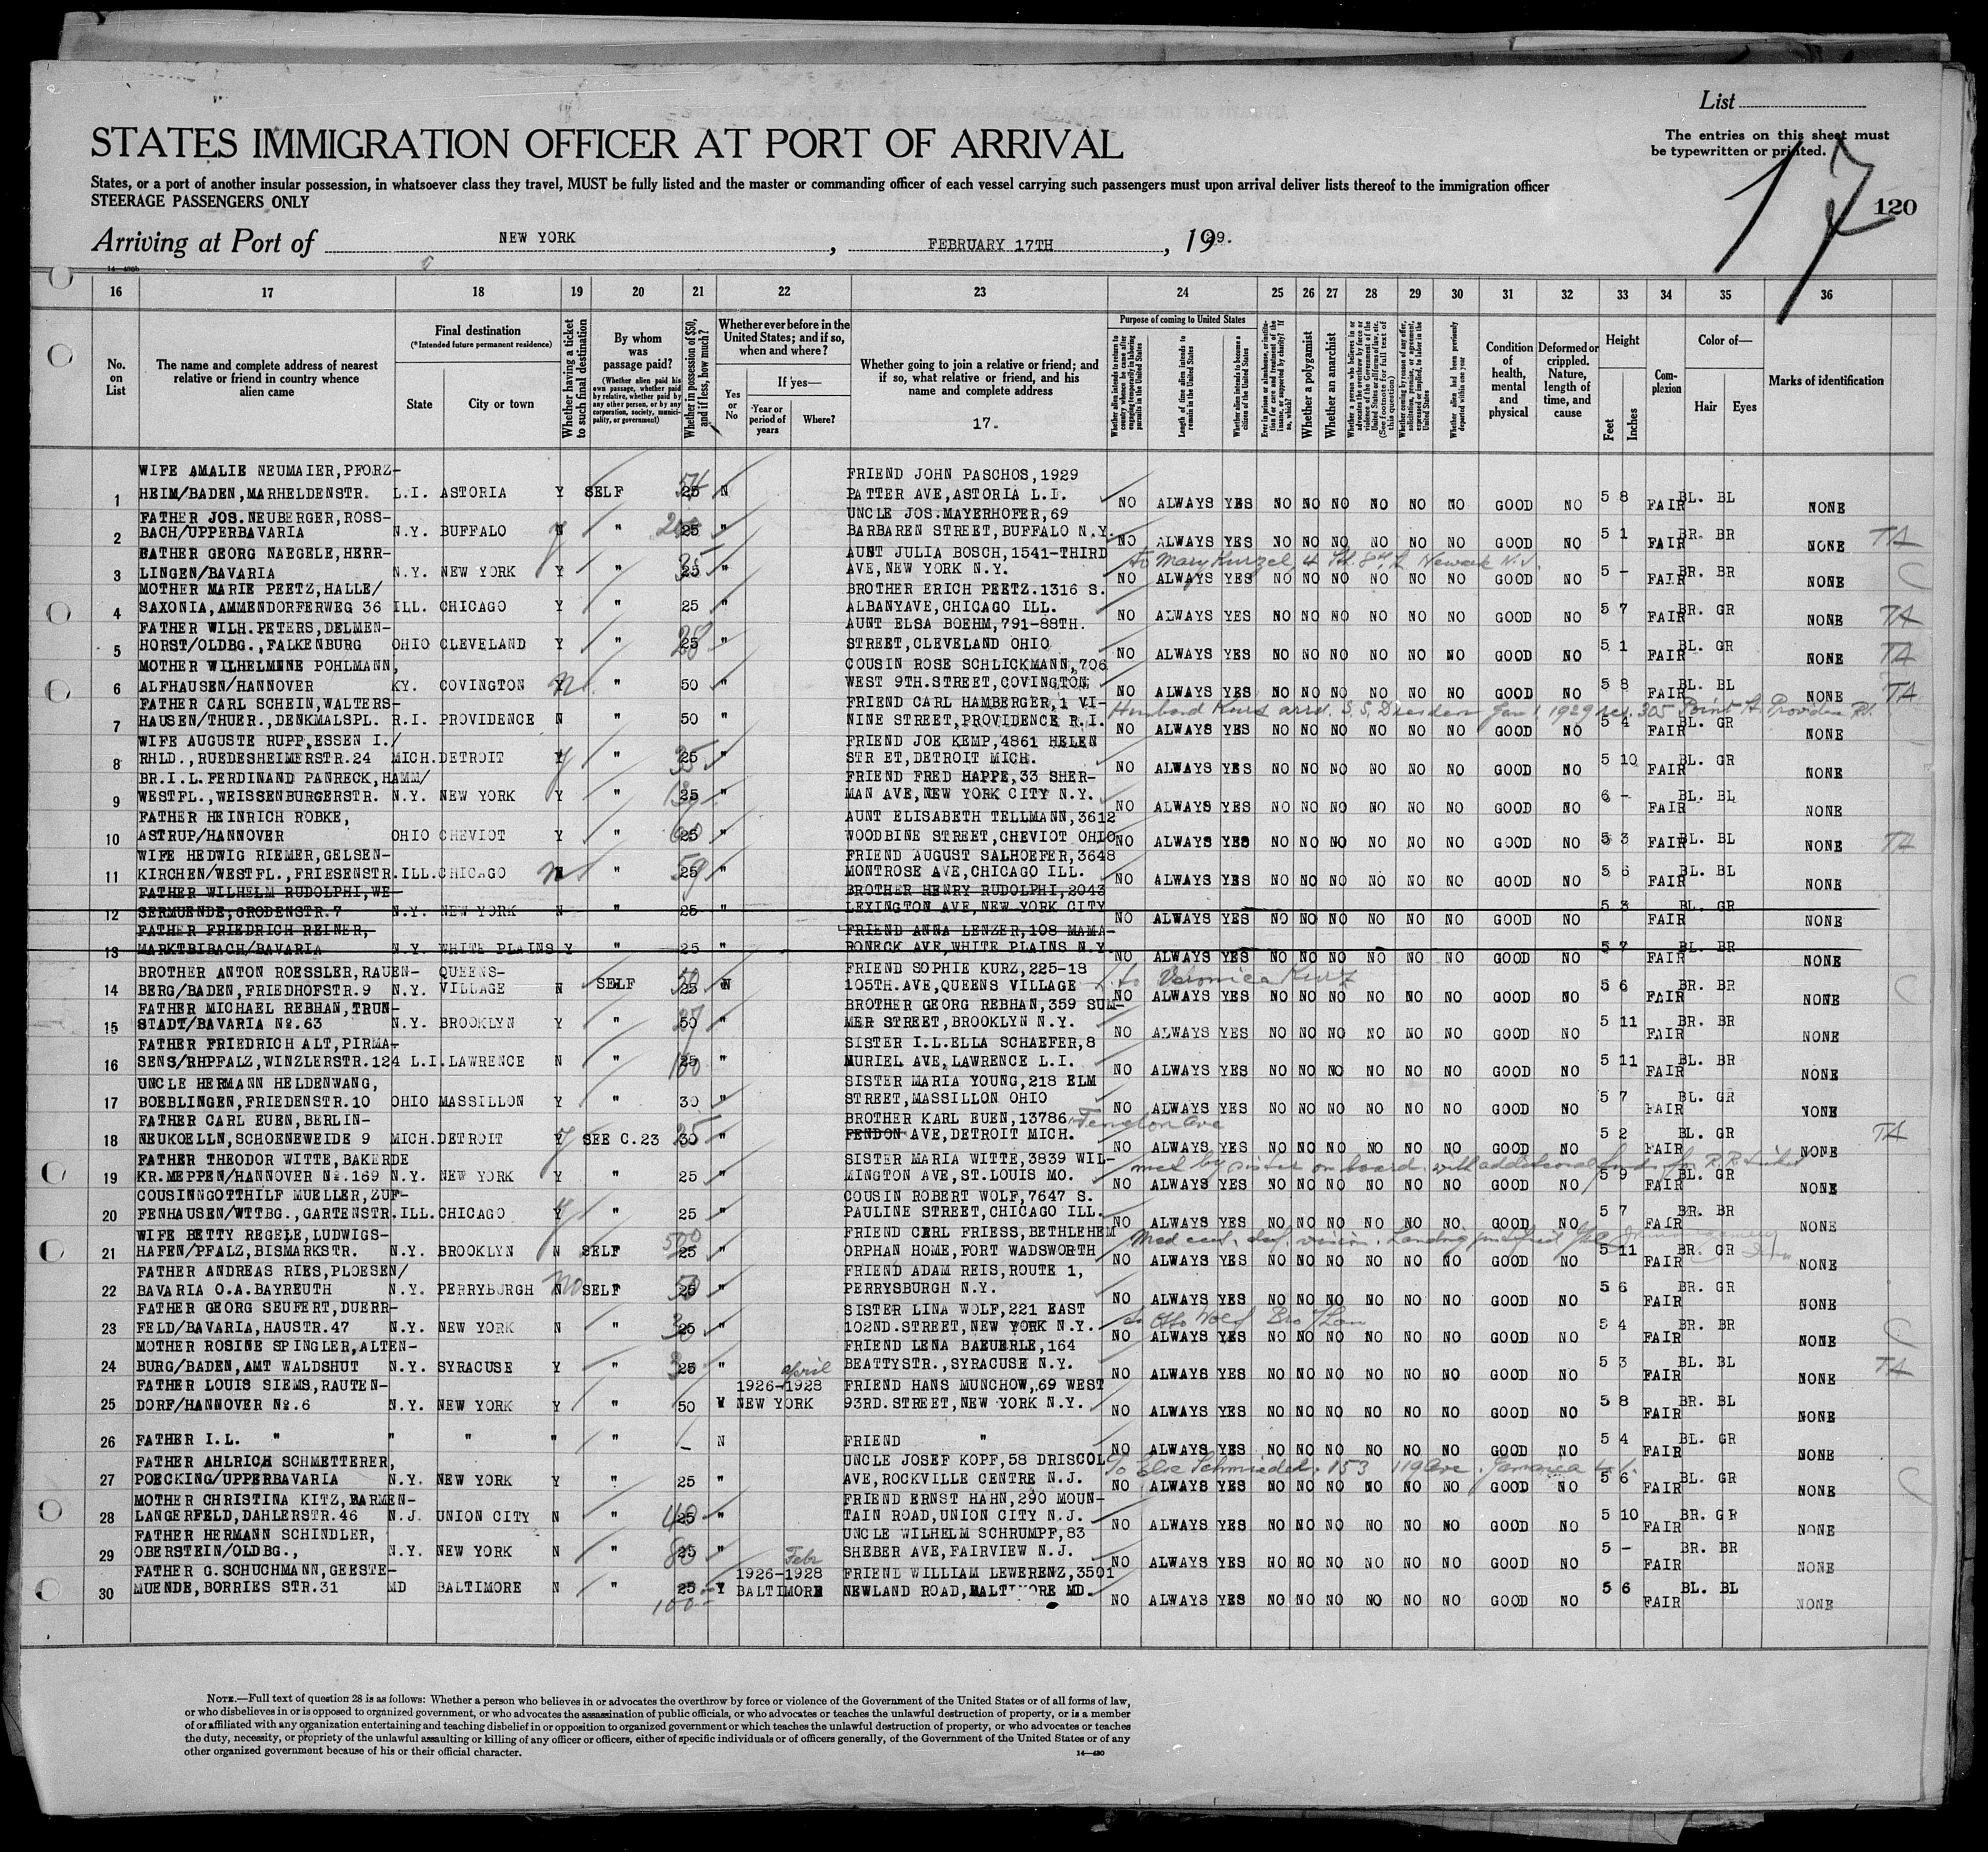 List
The entries on this sheet must
be typewritten or printed.
17
120
STATES IMMIGRATION OFFICER AT PORT OF ARRIVAL
States, or a port of another insular possession, in whatsoever class they travel, MUST be fully listed and the master or commanding officer of each vessel carrying such passengers must upon arrival deliver lists thereof to the immigration officer
STEERAGE PASSENGERS ONLY
Arriving at Port of NEW YORK, FEBRUARY 17TH, 1929.
16 17 18 19 20 21 22 23 24 25 26 27 28 29 30 31 32 33 34 35 36
No. on List
The name and complete address of nearest relative or friend in country whence alien came
Final destination
(*Intended future permanent residence)
State
City or town
Whether having a ticket to such final destination
By whom was passage paid?
(Whether alien paid his own passage, whether paid by relative, whether paid by any other person, or by any corporation, society, municipality, or government)
Whether in possession of $50, and if less, how much?
Whether ever before in the United States; and if so, when and where?
Yes or No
If yes—
Year or period of years
Where?
Whether going to join a relative or friend; and if so, what relative or friend, and his name and complete address
17.
Purpose of coming to United States
Length of time alien intends to remain in the United States
Whether alien intends to become a citizen of the United States
Whether a polygamist
Whether an anarchist
Whether alien had been previously deported within one year
Condition of health, mental and physical
Deformed or crippled. Nature, length of time, and cause
Height
Feet
Inches
Complexion
Color of—
Hair
Eyes
Marks of identification
WIFE AMALIE NEUMAIER,PFORZ- FRIEND JOHN PASCHOS,1929
1 HEIM/BADEN,MARHELDENSTR. L.I. ASTORIA Y SELF 25 N PATTER AVE,ASTORIA L.I. NO ALWAYS YES NO NO NO NO NO NO GOOD NO 5 8 FAIR BL. BL NONE
FATHER JOS.NEUBERGER,ROSS- UNCLE JOS.MAYERHOFER,69
2 BACH/UPPERBAVARIA N.Y. BUFFALO N " 25 " BARBAREN STREET,BUFFALO N.Y. NO ALWAYS YES NO NO NO NO NO NO GOOD NO 5 1 FAIR BR. BR NONE TA
FATHER GEORG NAEGELE,HERR- AUNT JULIA BOSCH,1541-THIRD to Mary Kurzel, Newark N.J.
3 LINGEN/BAVARIA N.Y. NEW YORK Y " 25 35 " AVE,NEW YORK N.Y. NO ALWAYS YES NO NO NO NO NO NO GOOD NO 5 - FAIR BR. BR NONE
MOTHER MARIE PEETZ,HALLE/ BROTHER ERICH PEETZ.1316 S.
4 SAXONIA,AMMENDORFERWEG 36 ILL. CHICAGO Y " 25 " ALBANYAVE,CHICAGO ILL. NO ALWAYS YES NO NO NO NO NO NO GOOD NO 5 7 FAIR BR. GR NONE TA
FATHER WILH.PETERS,DELMEN- AUNT ELSA BOEHM,791-88TH.
5 HORST/OLDBG.,FALKENBURG OHIO CLEVELAND Y " 25 28 " STREET,CLEVELAND OHIO NO ALWAYS YES NO NO NO NO NO NO GOOD NO 5 1 FAIR BL. GR NONE TA
MOTHER WILHELMINE POHLMANN, COUSIN ROSE SCHLICKMANN,706
6 ALFHAUSEN/HANNOVER KY. COVINGTON " 50 " WEST 9TH.STREET,COVINGTON NO ALWAYS YES NO NO NO NO NO NO GOOD NO 5 8 FAIR BL. BL NONE TA
FATHER CARL SCHEIN,WALTERS- FRIEND CARL HAMBERGER,1 VI- Husband Kurt arrd. S.S. Dresden Jan 1, 1929 res. 305 Point St. Providen R.I.
7 HAUSEN/THUER.,DENKMALSPL. R.I. PROVIDENCE N " 50 " NINE STREET,PROVIDENCE R.I. NO ALWAYS YES NO NO NO NO NO NO GOOD NO 5 4 FAIR BL. GR NONE
WIFE AUGUSTE RUPP,ESSEN I./ FRIEND JOE KEMP,4861 HELEN
8 RHLD.,RUEDESHEIMERSTR.24 MICH.DETROIT Y " 25 35 " STR ET,DETROIT MICH. NO ALWAYS YES NO NO NO NO NO NO GOOD NO 5 10 FAIR BL. GR NONE
BR.I.L.FERDINAND PANRECK,HAMM/ FRIEND FRED HAPPE,33 SHER-
9 WESTFL.,WEISSENBURGERSTR. N.Y. NEW YORK Y " 25 " MAN AVE,NEW YORK CITY N.Y. NO ALWAYS YES NO NO NO NO NO NO GOOD NO 6 - FAIR BL. BL NONE
FATHER HEINRICH ROBKE, AUNT ELISABETH TELLMANN,3612
10 ASTRUP/HANNOVER OHIO CHEVIOT Y " 25 60 " WOODBINE STREET,CHEVIOT OHIO NO ALWAYS YES NO NO NO NO NO NO GOOD NO 5 3 FAIR BL. BL NONE TA
WIFE HEDWIG RIEMER,GELSEN- FRIEND AUGUST SALHOEFER,3648
11 KIRCHEN/WESTFL.,FRIESENSTR.ILL.CHICAGO " 25 59 " MONTROSE AVE,CHICAGO ILL. NO ALWAYS YES NO NO NO NO NO NO GOOD NO 5 6 FAIR BL. BL NONE
FATHER WILHELM RUDOLPHI,WE- BROTHER HENRY RUDOLPHI,2043
12 SERMUENDE,GRODENSTR.7 N.Y. NEW YORK N " 25 " LEXINGTON AVE,NEW YORK CITY NO ALWAYS YES NO NO NO NO NO NO GOOD NO 5 8 FAIR BL. GR NONE
FATHER FRIEDRICH REINER, FRIEND ANNA LENZER,108 MAMA-
13 MARKTBIBACH/BAVARIA N.Y. WHITE PLAINS Y " 25 " RONECK AVE,WHITE PLAINS N.Y. NO ALWAYS YES NO NO NO NO NO NO GOOD NO 5 7 FAIR BL. BR NONE
BROTHER ANTON ROESSLER,RAUEN- QUEENS- FRIEND SOPHIE KURZ,225-18 to Veronica Kurz
14 BERG/BADEN,FRIEDHOFSTR.9 N.Y. VILLAGE N SELF 25 50 N 105TH.AVE,QUEENS VILLAGE NO ALWAYS YES NO NO NO NO NO NO GOOD NO 5 6 FAIR BR. BR NONE
FATHER MICHAEL REBHAN,TRUN- BROTHER GEORG REBHAN,359 SUM-
15 STADT/BAVARIA No.63 N.Y. BROOKLYN Y " 50 27 " MER STREET,BROOKLYN N.Y. NO ALWAYS YES NO NO NO NO NO NO GOOD NO 5 11 FAIR BR. BR NONE
FATHER FRIEDRICH ALT,PIRMA- SISTER I.L.ELLA SCHAEFER,8
16 SENS/RHPFALZ,WINZLERSTR.124 L.I.LAWRENCE N " 25 100 " MURIEL AVE,LAWRENCE L.I. NO ALWAYS YES NO NO NO NO NO NO GOOD NO 5 11 FAIR BL. BR NONE
UNCLE HERMANN HELDENWANG, SISTER MARIA YOUNG,218 ELM
17 BOEBLINGEN,FRIEDENSTR.10 OHIO MASSILLON Y " 30 " STREET,MASSILLON OHIO NO ALWAYS YES NO NO NO NO NO NO GOOD NO 5 7 FAIR BL. GR NONE
FATHER CARL EUEN,BERLIN- BROTHER KARL EUEN,13786 Fenelon Ave
18 NEUKOELLN,SCHOENEWEIDE 9 MICH.DETROIT Y SEE C.23 30 " FENDON AVE,DETROIT MICH. NO ALWAYS YES NO NO NO NO NO NO GOOD NO 5 2 FAIR BL. GR NONE TA
FATHER THEODOR WITTE,BAKERDE SISTER MARIA WITTE,3839 WIL- met by sister on board with additional funds for R.R. ticket
19 KR.MEPPEN/HANNOVER No.169 N.Y. NEW YORK Y " 25 " MINGTON AVE,ST.LOUIS MO. NO ALWAYS YES NO NO NO NO NO NO GOOD NO 5 9 FAIR BL. GR NONE
COUSINNGOTTHILF MUELLER,ZUF- COUSIN ROBERT WOLF,7647 S.
20 FENHAUSEN/WTTBG.,GARTENSTR.ILL.CHICAGO Y " 25 " PAULINE STREET,CHICAGO ILL. NO ALWAYS YES NO NO NO NO NO NO GOOD NO 5 7 FAIR BR. BR NONE
WIFE BETTY REGELE,LUDWIGS- FRIEND CERL FRIESS,BETHLEHEM Med cert. def. vision. Landing
21 HAFEN/PFALZ,BISMARKSTR. N.Y. BROOKLYN N SELF 25 500 " ORPHAN HOME,FORT WADSWORTH NO ALWAYS YES NO NO NO NO NO NO GOOD NO 5 11 FAIR BR. GR NONE
FATHER ANDREAS RIES,PLOESEN/ FRIEND ADAM REIS,ROUTE 1,
22 BAVARIA O.A.BAYREUTH N.Y. PERRYBURGH N no SELF 25 50 " PERRYSBURGH N.Y. NO ALWAYS YES NO NO NO NO NO NO GOOD NO 5 6 FAIR BR. GR NONE
FATHER GEORG SEUFERT,DUERR- SISTER LINA WOLF,221 EAST to Otto Wolf Bro/Law
23 FELD/BAVARIA,HAUSTR.47 N.Y. NEW YORK N " 25 " 102ND.STREET,NEW YORK N.Y. NO ALWAYS YES NO NO NO NO NO NO GOOD NO 5 4 FAIR BR. BR NONE
MOTHER ROSINE SPINGLER,ALTEN- FRIEND LENA BAEUERLE,164
24 BURG/BADEN,AMT WALDSHUT N.Y. SYRACUSE Y " 25 " april BEATTYSTR.,SYRACUSE N.Y. NO ALWAYS YES NO NO NO NO NO NO GOOD NO 5 3 FAIR BL. BL NONE TA
FATHER LOUIS SIEMS,RAUTEN- 1926-1928 FRIEND HANS MUNCHOW,69 WEST
25 DORF/HANNOVER No.6 N.Y. NEW YORK Y " 50 Y NEW YORK 93RD.STREET,NEW YORK N.Y. NO ALWAYS YES NO NO NO NO NO NO GOOD NO 5 8 FAIR BR. BL NONE
26 FATHER I.L. " " " " " - N FRIEND " NO ALWAYS YES NO NO NO NO NO NO GOOD NO 5 4 FAIR BL. GR NONE
FATHER AHLRICH SCHMETTERER, UNCLE JOSEF KOPF,58 DRISCOL to Else Schmiedel, 153 119 Ave. Jamaica L.I.
27 POECKING/UPPERBAVARIA N.Y. NEW YORK Y " 25 " AVE,ROCKVILLE CENTRE N.J. NO ALWAYS YES NO NO NO NO NO NO GOOD NO 5 6 FAIR BL. GR NONE
MOTHER CHRISTINA KITZ,BARMEN- FRIEND ERNST HAHN,290 MOUN-
28 LANGERFELD,DAHLERSTR.46 N.J. UNION CITY N " 25 40 " TAIN ROAD,UNION CITY N.J. NO ALWAYS YES NO NO NO NO NO NO GOOD NO 5 10 FAIR BR. GR NONE
FATHER HERMANN SCHINDLER, UNCLE WILHELM SCHRUMPF,83
29 OBERSTEIN/OLDBG., N.Y. NEW YORK N " 25 80 " Febr SHEBER AVE,FAIRVIEW N.J. NO ALWAYS YES NO NO NO NO NO NO GOOD NO 5 - FAIR BR. BR NONE
FATHER G.SCHUCHMANN,GEESTE- 1926-1928 FRIEND WILLIAM LEWERENZ,3501
30 MUENDE,BORRIES STR.31 MD BALTIMORE N " 25 100 Y BALTIMORE NEWLAND ROAD,BALTIMORE MD. NO ALWAYS YES NO NO NO NO NO NO GOOD NO 5 6 FAIR BL. BL NONE
NOTE.—Full text of question 28 is as follows: Whether a person who believes in or advocates the overthrow by force or violence of the Government of the United States or of all forms of law,
or who disbelieves in or is opposed to organized government, or who advocates the assassination of public officials, or who advocates or teaches the unlawful destruction of property, or is a member
of or affiliated with any organization entertaining and teaching disbelief in or opposition to organized government or which teaches the unlawful destruction of property, or who advocates or teaches
the duty, necessity, or propriety of the unlawful assaulting or killing of any officer or officers, either of specific individuals or of officers generally, of the Government of the United States or of any
other organized government because of his or their official character.
14—430